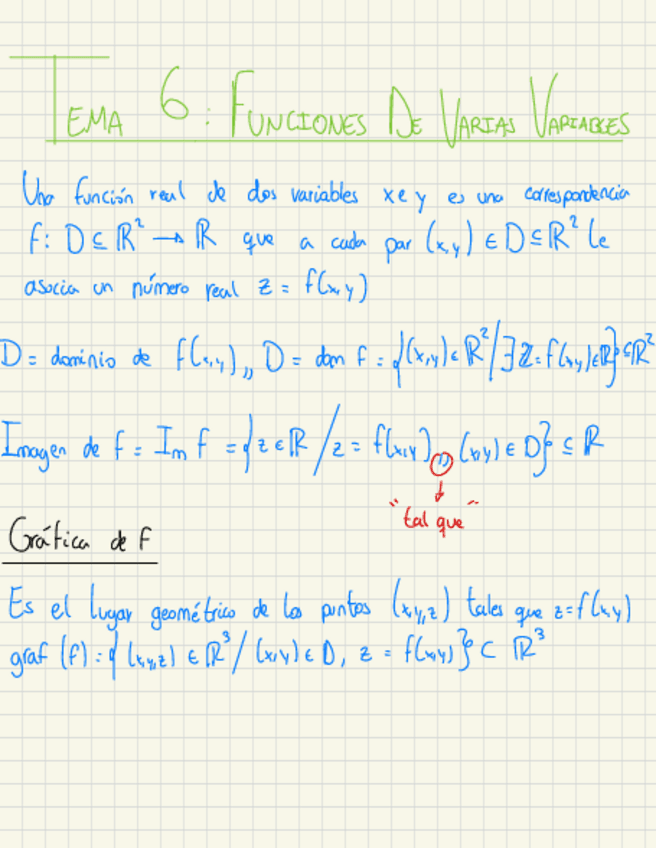 TEMA 6: FUNCIONES DE VARIAS VARIABLES
Una función real de dos variables x e y es una correspondencia
f: D ⊆ ℝ² → ℝ que a cada par (x,y) ∈ D ⊆ ℝ² le
asocia un número real z = f(x,y)
D = dominio de f(x,y) ,, D = dom f = {(x,y) ∈ ℝ² / ∃ z = f(x,y) ∈ ℝ} ⊆ ℝ²
Imagen de f = Im f = {z ∈ ℝ / z = f(x,y) ,, (x,y) ∈ D} ⊆ ℝ
"tal que"
Gráfica de f
Es el lugar geométrico de los puntos (x,y,z) tales que z = f(x,y)
graf (f) = {(x,y,z) ∈ ℝ³ / (x,y) ∈ D, z = f(x,y)} ⊂ ℝ³